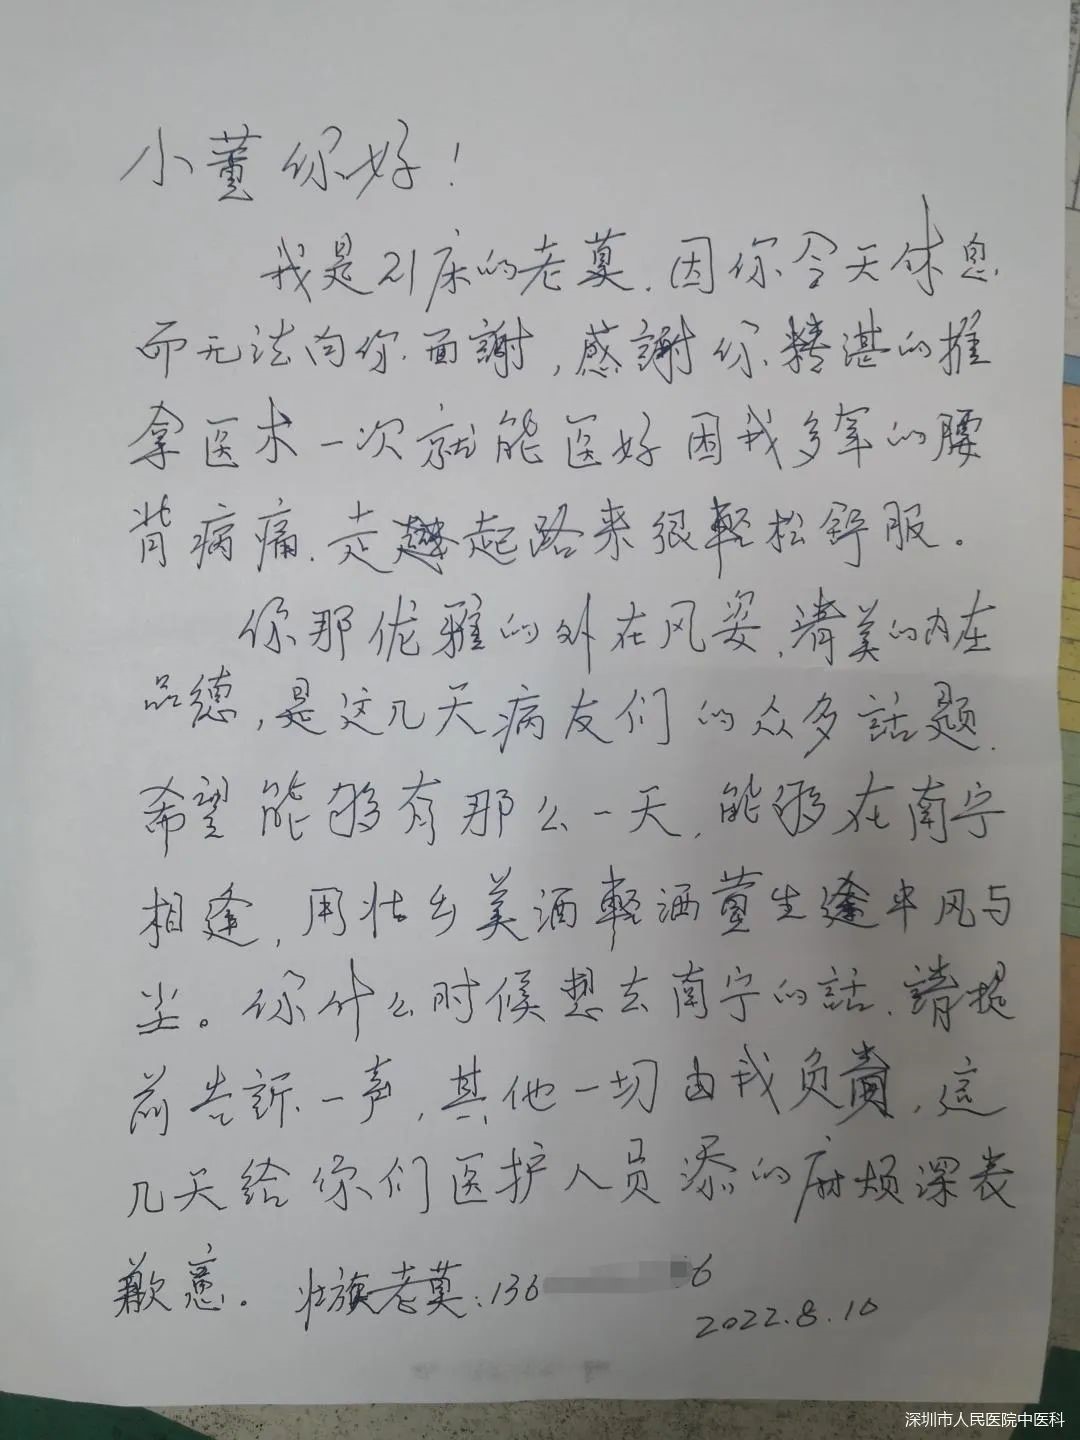 小董你好！
我是21床的老莫.因你今天休息
而无法向你面謝,感謝你精湛的推
拿医术一次就能医好困我多年的腰
背病痛.走起路来很輕松舒服。
你那优雅的外在风姿,清美的内在
品德,是这几天病友们的众多話题.
希望能够有那么一天,能够在南宁
相逢,用壮乡美酒輕洒董生逢半风与
尘。你什么时候想去南宁的話.請提
前告訴一声,其他一切由我负責,这
几天给你们医护人员添的麻烦深表
歉意。 壮族老莫:136 6
2022.8.10
深圳市人民医院中医科